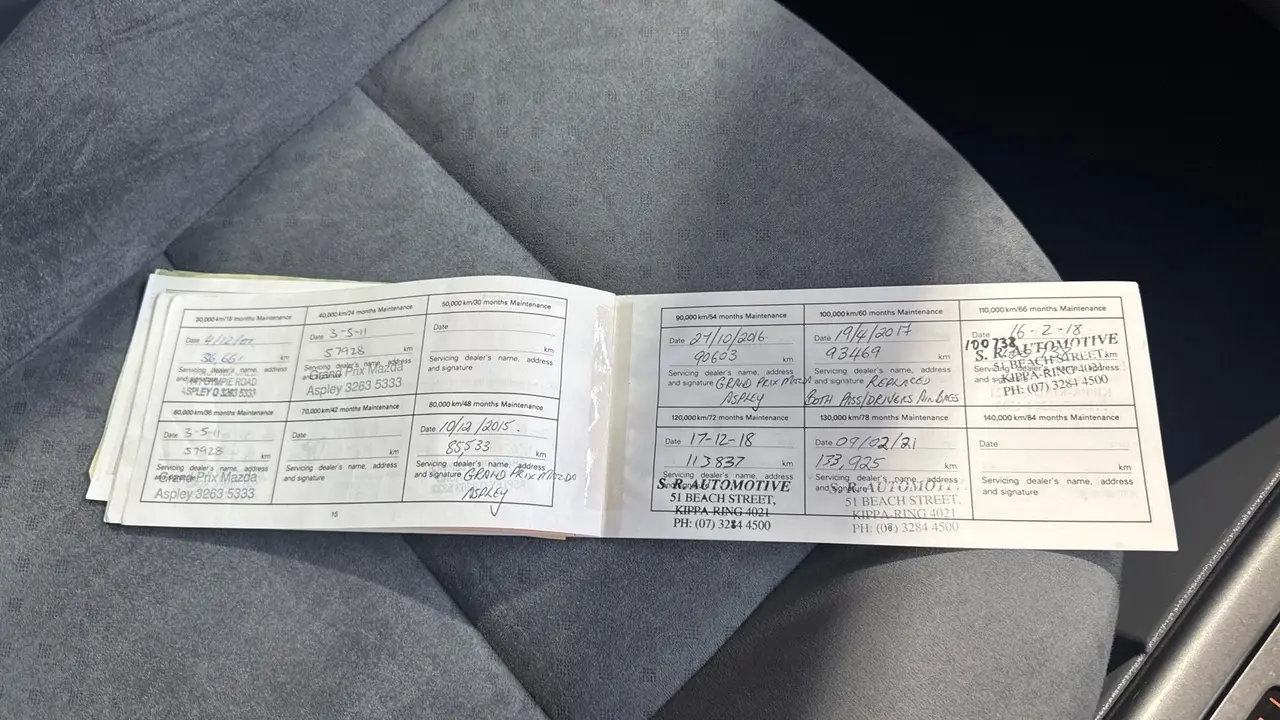 30,000 km/18 months Maintenance
Date 4/12/07
36,661 km
Servicing dealer's name, address
and signature
GYMPIE ROAD
ASPLEY Q 3263 5333
40,000 km/24 months Maintenance
Date 3-5-11
57928 km
Servicing dealer's name, address
and signature
Grand Prix Mazda
Aspley 3263 5333
50,000 km/30 months Maintenance
Date
km
Servicing dealer's name, address
and signature
60,000 km/36 months Maintenance
Date 3-5-11
57928 km
Servicing dealer's name, address
and signature
Grand Prix Mazda
Aspley 3263 5333
70,000 km/42 months Maintenance
Date
km
Servicing dealer's name, address
and signature
80,000 km/48 months Maintenance
Date 10/12/2015.
85533 km
Servicing dealer's name, address
and signature GRAND PRIX MAZDA
ASPLEY
15
90,000 km/54 months Maintenance
Date 27/10/2016
90603 km
Servicing dealer's name, address
and signature GRAND PRIX MAZDA
ASPLEY
100,000 km/60 months Maintenance
Date 19/4/2017
93469 km
Servicing dealer's name, address
and signature REPLACED
BOTH PASS/DRIVERS AIR BAGS
110,000 km/66 months Maintenance
Date 16-2-18
100738
S. R. AUTOMOTIVE
51 BEACH STREET,
KIPPA-RING 4021
PH: (07) 3284 4500
120,000 km/72 months Maintenance
Date 17-12-18
113837 km
Servicing dealer's name, address
and signature
S. R. AUTOMOTIVE
51 BEACH STREET,
KIPPA-RING 4021
PH: (07) 3284 4500
130,000 km/78 months Maintenance
Date 09/02/21
133,925 km
Servicing dealer's name, address
and signature
S. R. AUTOMOTIVE
51 BEACH STREET,
KIPPA-RING 4021
PH: (07) 3284 4500
140,000 km/84 months Maintenance
Date
km
Servicing dealer's name, address
and signature